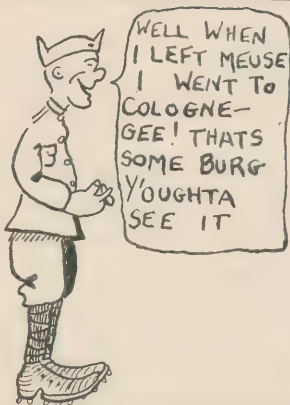 WELL WHEN
I LEFT MEUSE
I WENT TO
COLOGNE—
GEE! THATS
SOME BURG
Y'OUGHTA
SEE IT
13